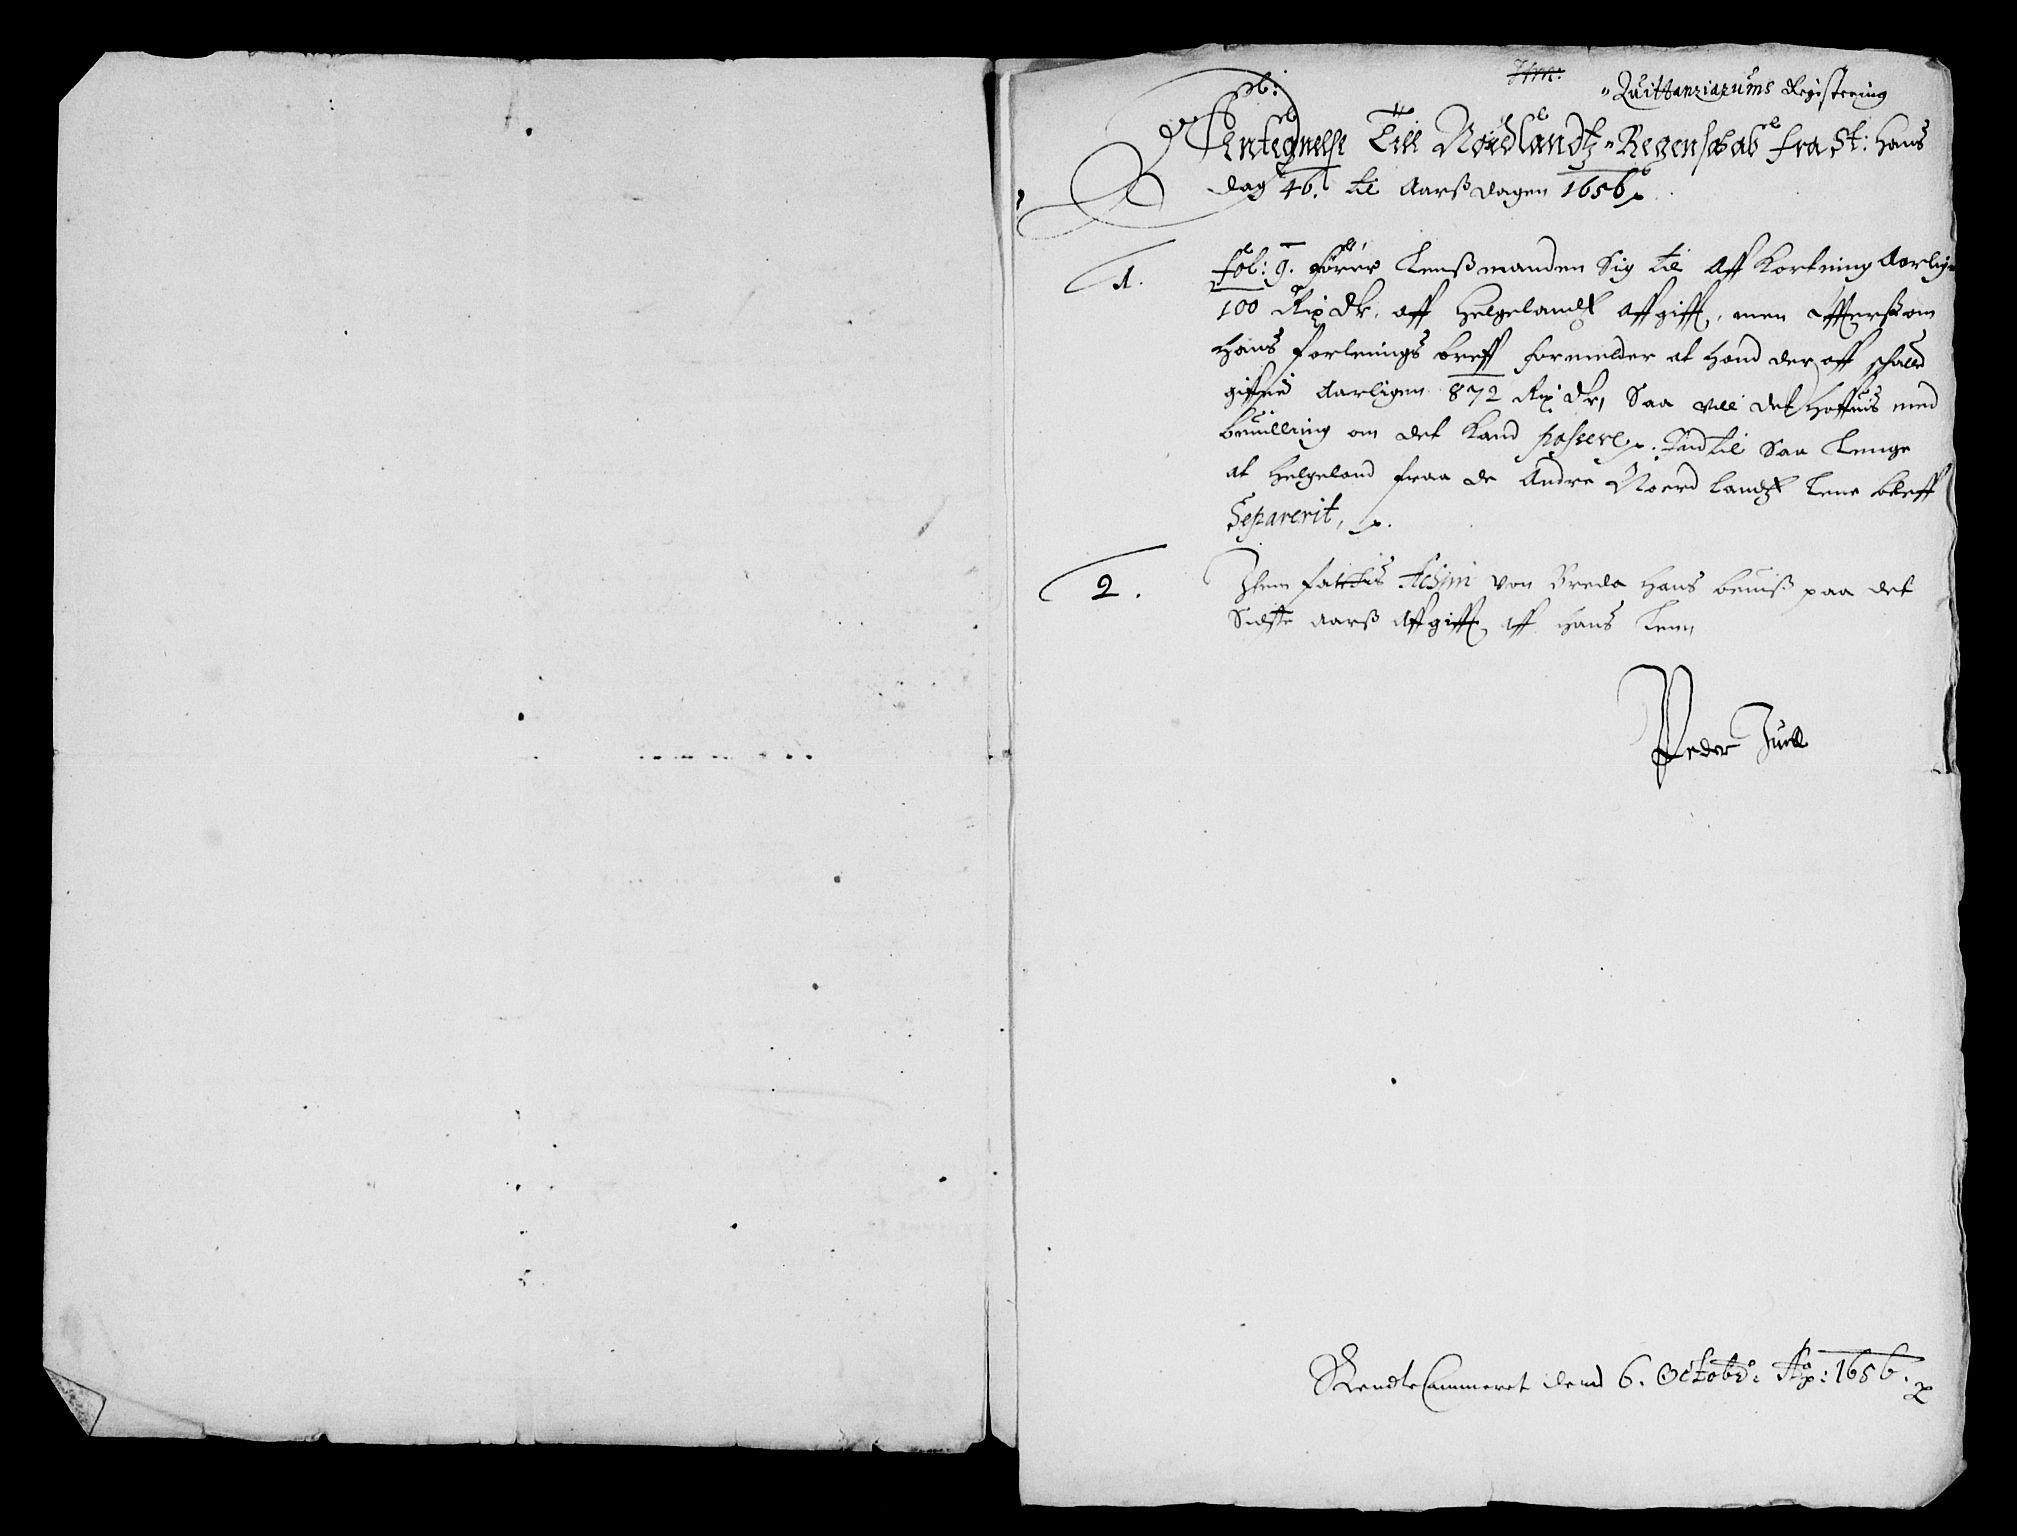 Quittanziarums Registering
Antegnelse Till Nordlandtz Regenskab fra St: Hans
dag 46. til Aarßdagen 1656
1. fol: 9. fører Lenßmanden Sig til Aff Kortning Aarlig
100 Rix Dr. aff Helgelandtz Affgifft, men Effterßom
Hans forlenings breff formelder at hand der aff schall
giffue Aarligen 872 Rix Dr, Saa vill det hoffuis med
beuilling om det kand passere, Indtil Saa Lenge
at Helgeland fraa de Andre Noerdlandtz Lene bleff
Separerit,
2. Item fattis von Breda Hans beuiß paa det
Sidste aarß Affgifft aff Hans Leen
Peder Juell
RendteCammeret dend 6. Octobr: Ao: 1656.